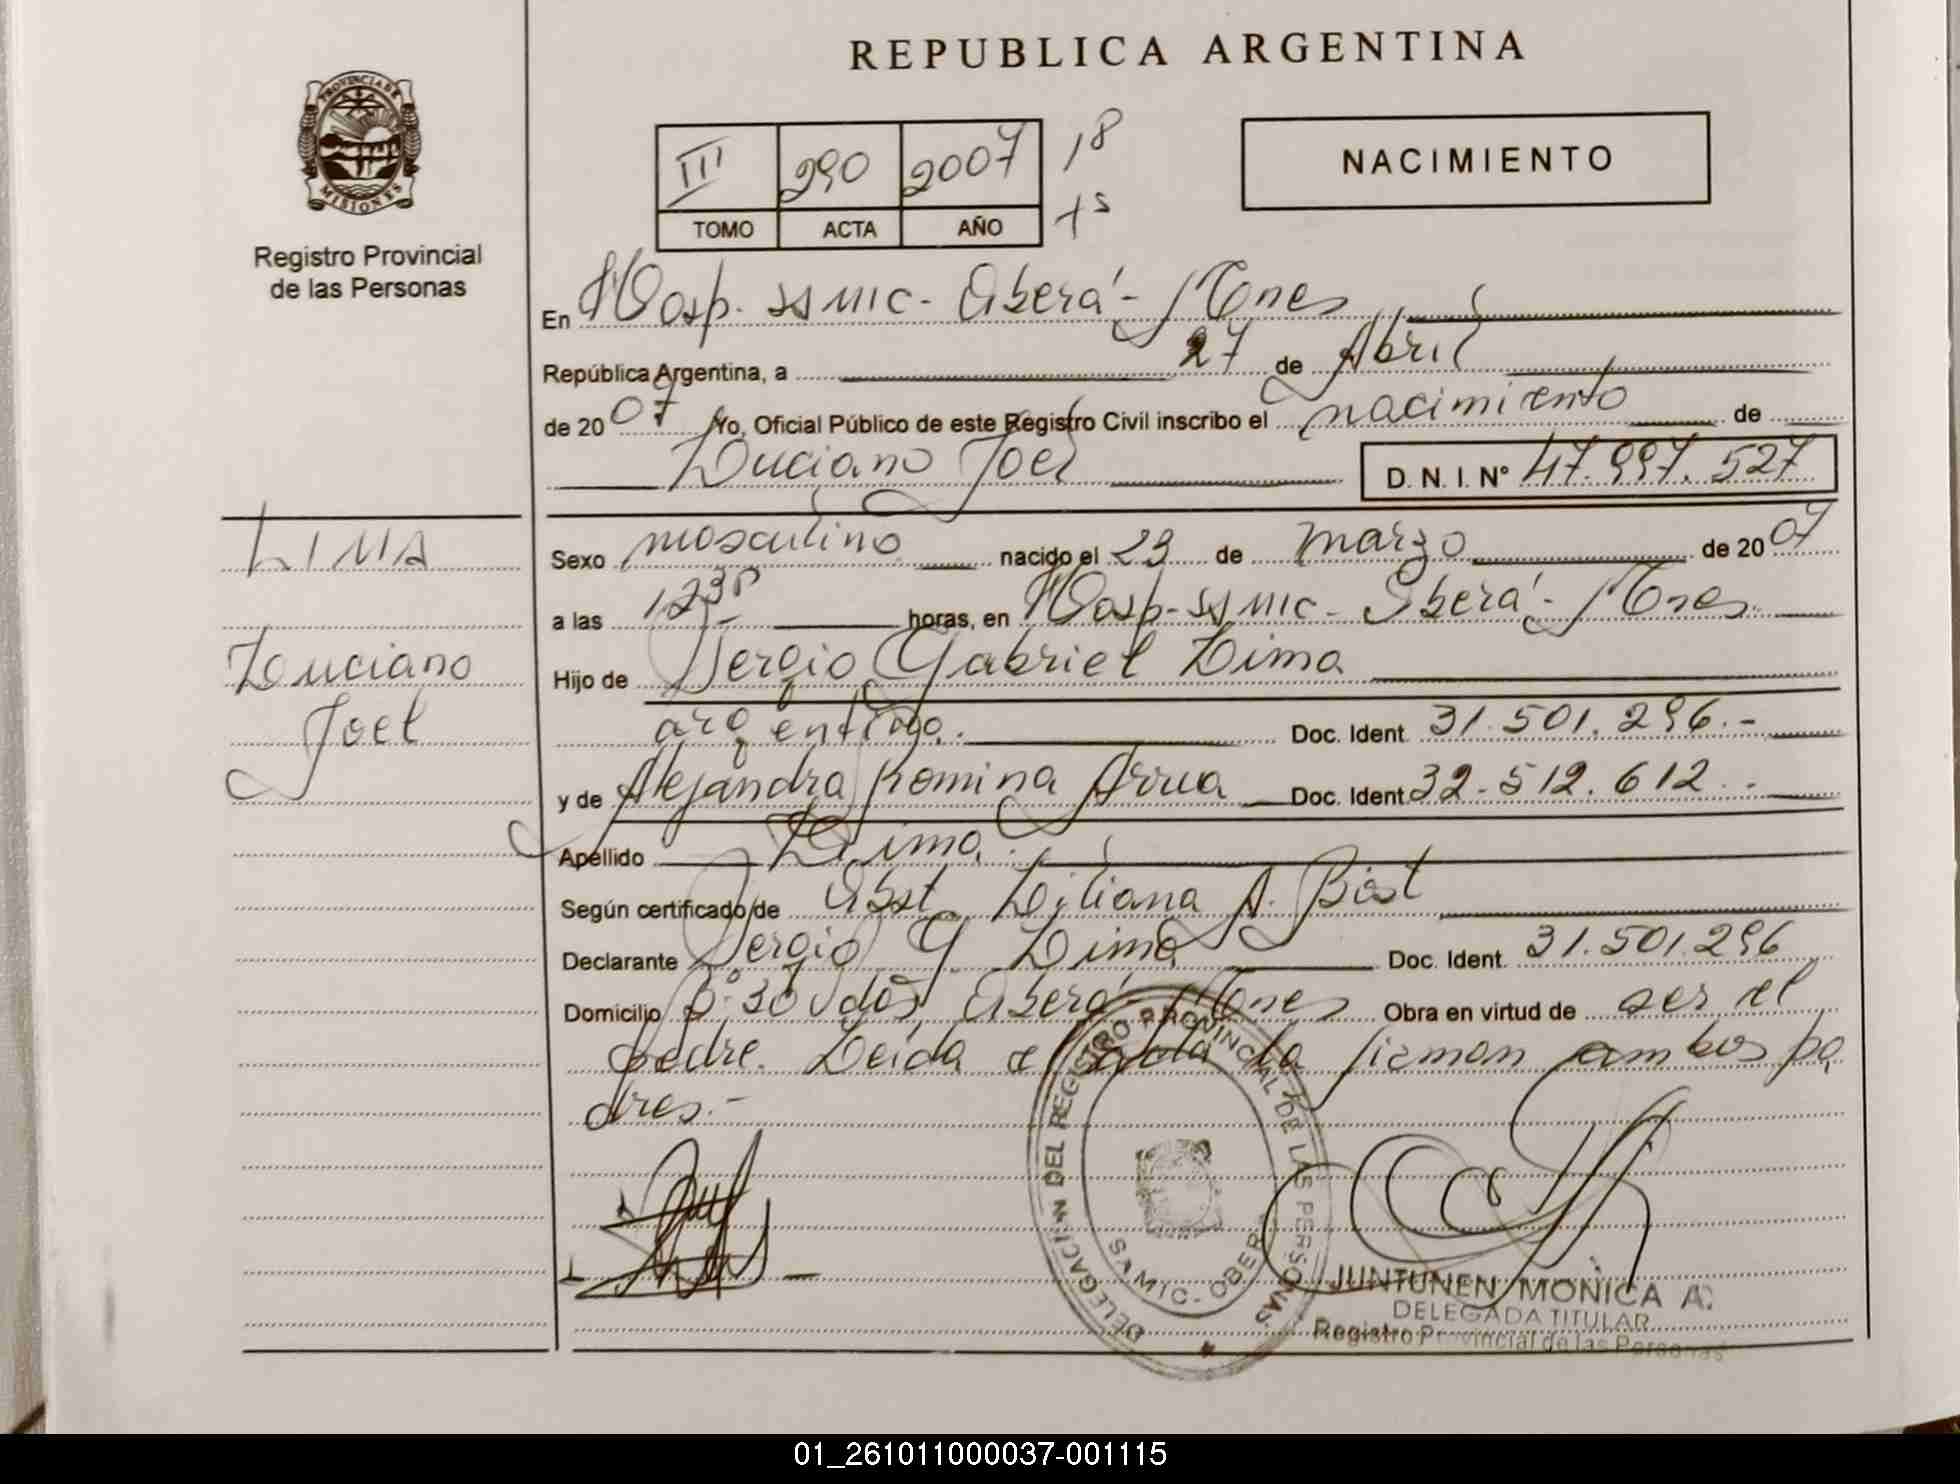 REPUBLICA ARGENTINA
PROVINCIA DE
MISIONES
Registro Provincial
de las Personas
III 290 2007 18
TOMO ACTA AÑO
NACIMIENTO
En Hosp. SAMIC - Oberá - Mnes
República Argentina, a 27 de Abril
de 2007 Yo, Oficial Público de este Registro Civil inscribo el nacimiento de
Luciano Joel D. N. I. Nº 47.997.527
LIMA
Luciano
Joel
Sexo masculino nacido el 23 de marzo de 2007
a las horas, en Hosp-SAMIC - Oberá - Mnes.
Hijo de Sergio Gabriel Lima
argentino. Doc. Ident. 31.501.296.-
y de Alejandra Romina Arrua Doc. Ident 32.512.612.-
Apellido Lima.
Según certificado de Obst. Liliana A. Bist
Declarante Sergio G. Lima Doc. Ident. 31.501.296
Domicilio Oberá - Mnes Obra en virtud de ser el
padre. Leida el acta la firman ambos pa
dres.-
DELEGACION DEL REGISTRO PROVINCIAL DE LAS PERSONAS
SAMIC - OBERA
JUNTUNEN MONICA A.
DELEGADA TITULAR
Registro Provincial de las Personas
01_261011000037-001115